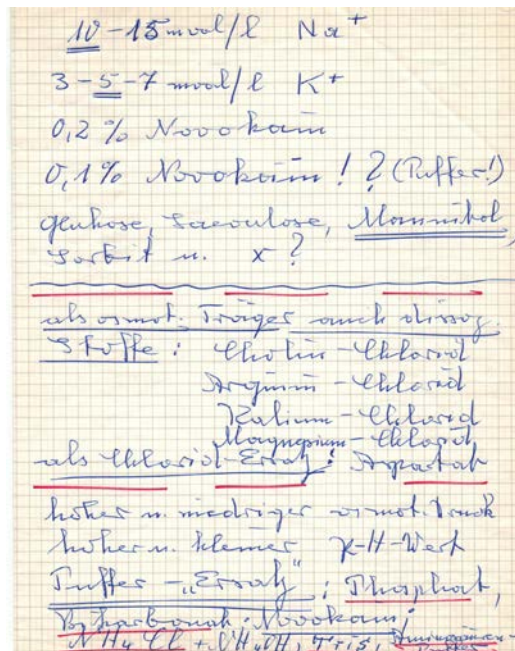 10-15 mval/l Na⁺
3-5-7 mval/l K⁺
0,2% Novokain
0,1% Novokain!? (Puffer!)
Glukose, Laevulose, Mannitol,
Sorbit u. x?
als osmot. Träger auch dissoz.
Stoffe: Cholin-Chlorid
Arginin-Chlorid
Kalium-Chlorid
Magnesium-Chlorid
als Chlorid-Ersatz: Aspartat
hoher u. niedriger osmot. Druck
hoher u. kleiner p-H-Wert
Puffer-„Ersatz": Phosphat,
Bikarbonat, Novokain,
NH₄Cl + NH₄OH, Tris, Aminosäuren-